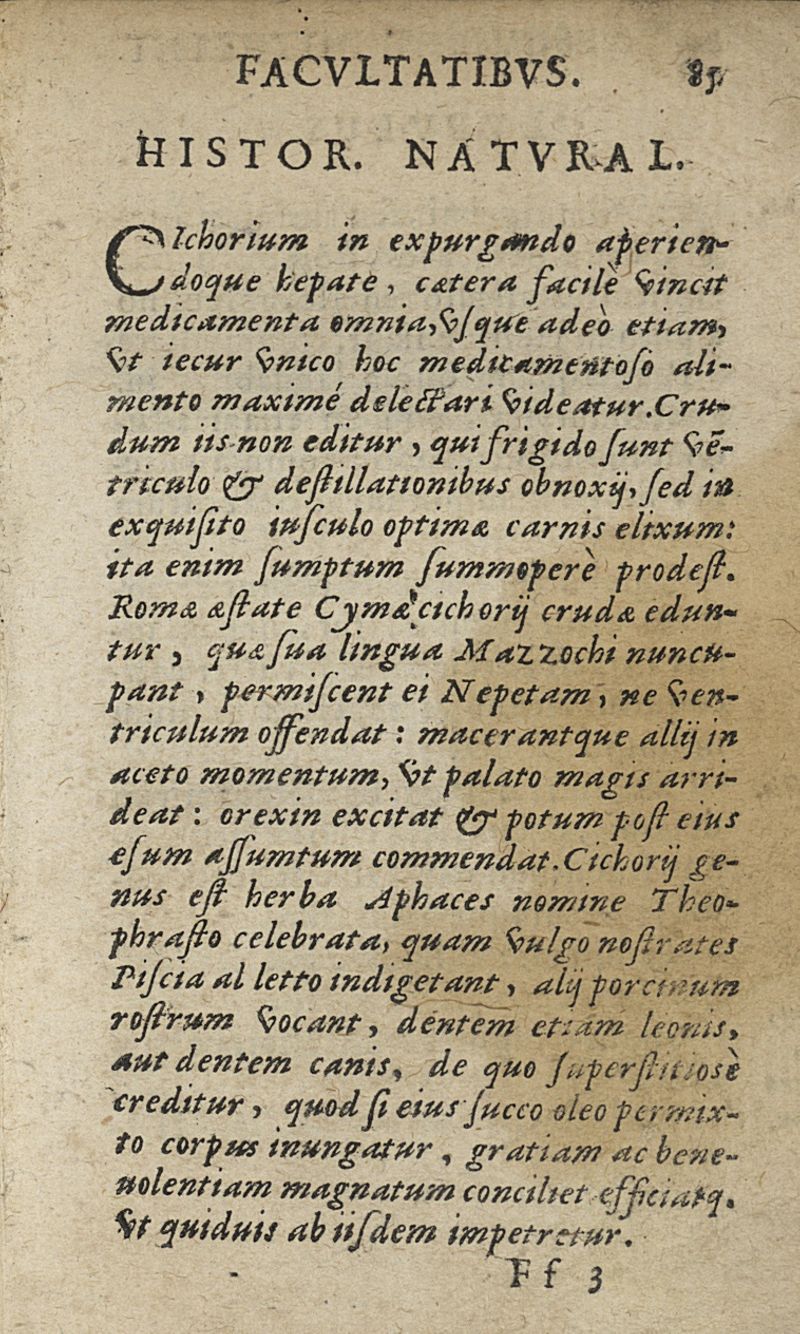 FACVLTATIBVS. 85
HISTOR. NATVRAL.
CIchorium in expurgando aperien-
doque hepate, cætera facilè vincit
medicamenta omnia, vſque adeò etiam,
vt iecur vnico hoc medicamentoſo ali-
mento maximé delectari videatur. Cru-
dum iis non editur, qui frigido ſunt vē-
triculo & deſtillationibus obnoxij, ſed in
exquiſito iuſculo optimæ carnis elixum:
ita enim ſumptum ſummoperè prodeſt.
Romæ æſtate Cymæ cichorij crudæ edun-
tur, quæ ſua lingua Mazzochi nuncu-
pant, permiſcent ei Nepetam, ne ven-
triculum offendat: macerantque allij in
aceto momentum, vt palato magis arri-
deat: orexin excitat & potum poſt eius
eſum aſſumtum commendat. Cichorij ge-
nus eſt herba Aphaces nomine Theo-
phraſto celebrata, quam vulgo noſtrates
Piſcia al letto indigetant, alij porcinum
roſtrum vocant, dentem etiam leonis,
aut dentem canis, de quo ſuperſtitiosè
creditur, quod ſi eius ſucco oleo permix-
to corpus inungatur, gratiam ac bene-
uolentiam magnatum conciliet efficiatq.
vt quiduis ab iiſdem impetretur.
Ff 3